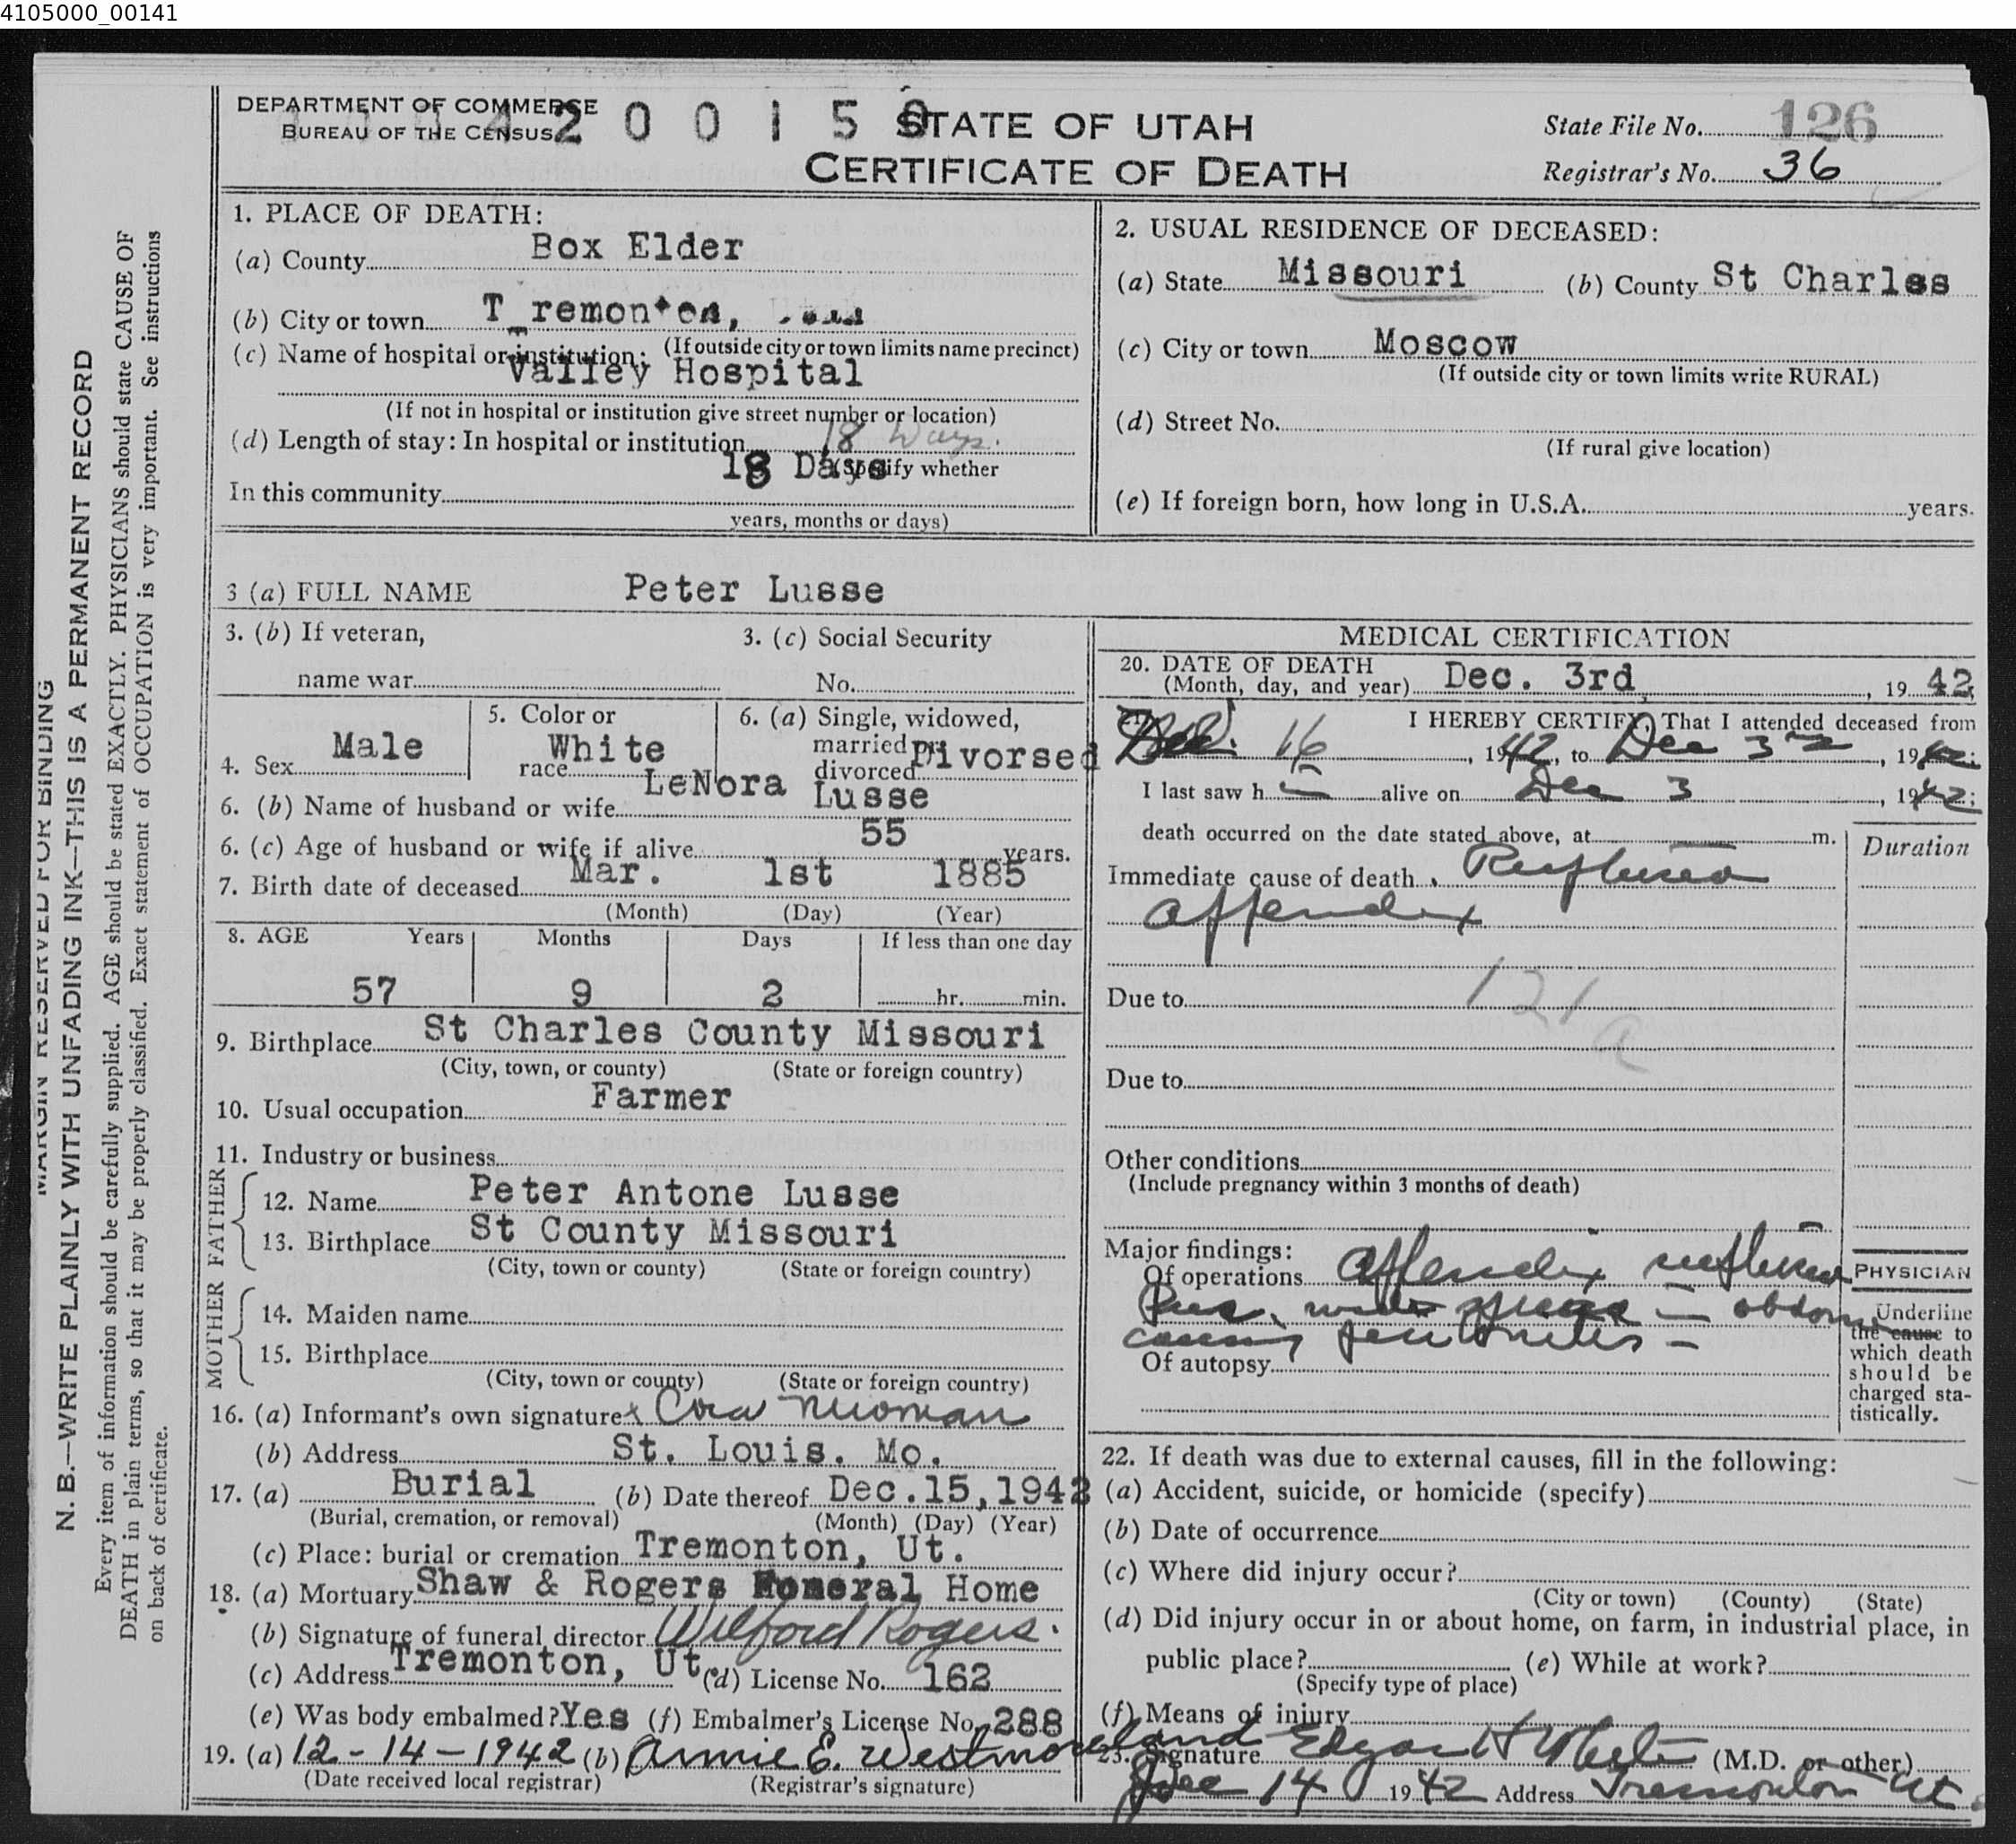 4105000_00141
DEPARTMENT OF COMMERSE
BUREAU OF THE CENSUS
2 0 0 1 5
STATE OF UTAH
CERTIFICATE OF DEATH
State File No. 126
Registrar's No. 36
MARGIN RESERVED FOR BINDING
N. B.—WRITE PLAINLY WITH UNFADING INK—THIS IS A PERMANENT RECORD
Every item of information should be carefully supplied. AGE should be stated EXACTLY. PHYSICIANS should state CAUSE OF
DEATH in plain terms, so that it may be properly classified. Exact statement of OCCUPATION is very important. See instructions
on back of certificate.
1. PLACE OF DEATH:
(a) County Box Elder
(b) City or town T remonton,
(If outside city or town limits name precinct)
(c) Name of hospital or institution:
Valley Hospital
(If not in hospital or institution give street number or location)
(d) Length of stay: In hospital or institution 18 Days.
18 Days (Specify whether
In this community
years, months or days)
2. USUAL RESIDENCE OF DECEASED:
(a) State Missouri (b) County St Charles
(c) City or town Moscow
(If outside city or town limits write RURAL)
(d) Street No.
(If rural give location)
(e) If foreign born, how long in U.S.A. years.
3 (a) FULL NAME Peter Lusse
3. (b) If veteran,
name war
3. (c) Social Security
No.
4. Sex Male
5. Color or
race White
6. (a) Single, widowed,
married or
divorced Divorsed
6. (b) Name of husband or wife LeNora Lusse
6. (c) Age of husband or wife if alive 55 years.
7. Birth date of deceased Mar. 1st 1885
(Month) (Day) (Year)
8. AGE Years Months Days If less than one day
57 9 2 hr. min.
9. Birthplace St Charles County Missouri
(City, town, or county) (State or foreign country)
10. Usual occupation Farmer
11. Industry or business
FATHER
12. Name Peter Antone Lusse
13. Birthplace St County Missouri
(City, town or county) (State or foreign country)
MOTHER
14. Maiden name
15. Birthplace
(City, town or county) (State or foreign country)
16. (a) Informant's own signature x Cora Nieman
(b) Address St. Louis. Mo.
17. (a) Burial (b) Date thereof Dec.15,1942
(Burial, cremation, or removal) (Month) (Day) (Year)
(c) Place: burial or cremation Tremonton, Ut.
18. (a) Mortuary Shaw & Rogers Funeral Home
(b) Signature of funeral director Wilford Rogers.
(c) Address Tremonton, Ut. (d) License No. 162
(e) Was body embalmed? Yes (f) Embalmer's License No. 288
19. (a) 12-14-1942 (b) Annie E. Westmoreland
(Date received local registrar) (Registrar's signature)
MEDICAL CERTIFICATION
20. DATE OF DEATH
(Month, day, and year) Dec. 3rd, 19 42
21. I HEREBY CERTIFY, That I attended deceased from
16, 1942, to Dec 3rd, 1942;
I last saw h im alive on Dec 3, 1942;
death occurred on the date stated above, at m.
Duration
Immediate cause of death Ruptured
appendix
Due to 121 a
Due to
Other conditions
(Include pregnancy within 3 months of death)
Major findings:
Of operations Appendix ruptured
Pus
causing peritonitis —
Of autopsy
PHYSICIAN
Underline
the cause to
which death
should be
charged sta-
tistically.
22. If death was due to external causes, fill in the following:
(a) Accident, suicide, or homicide (specify)
(b) Date of occurrence
(c) Where did injury occur?
(City or town) (County) (State)
(d) Did injury occur in or about home, on farm, in industrial place, in
public place? (e) While at work?
(Specify type of place)
(f) Means of injury
23. Signature Edgar H White (M.D. or other)
Dec 14 1942 Address Tremonton Ut.